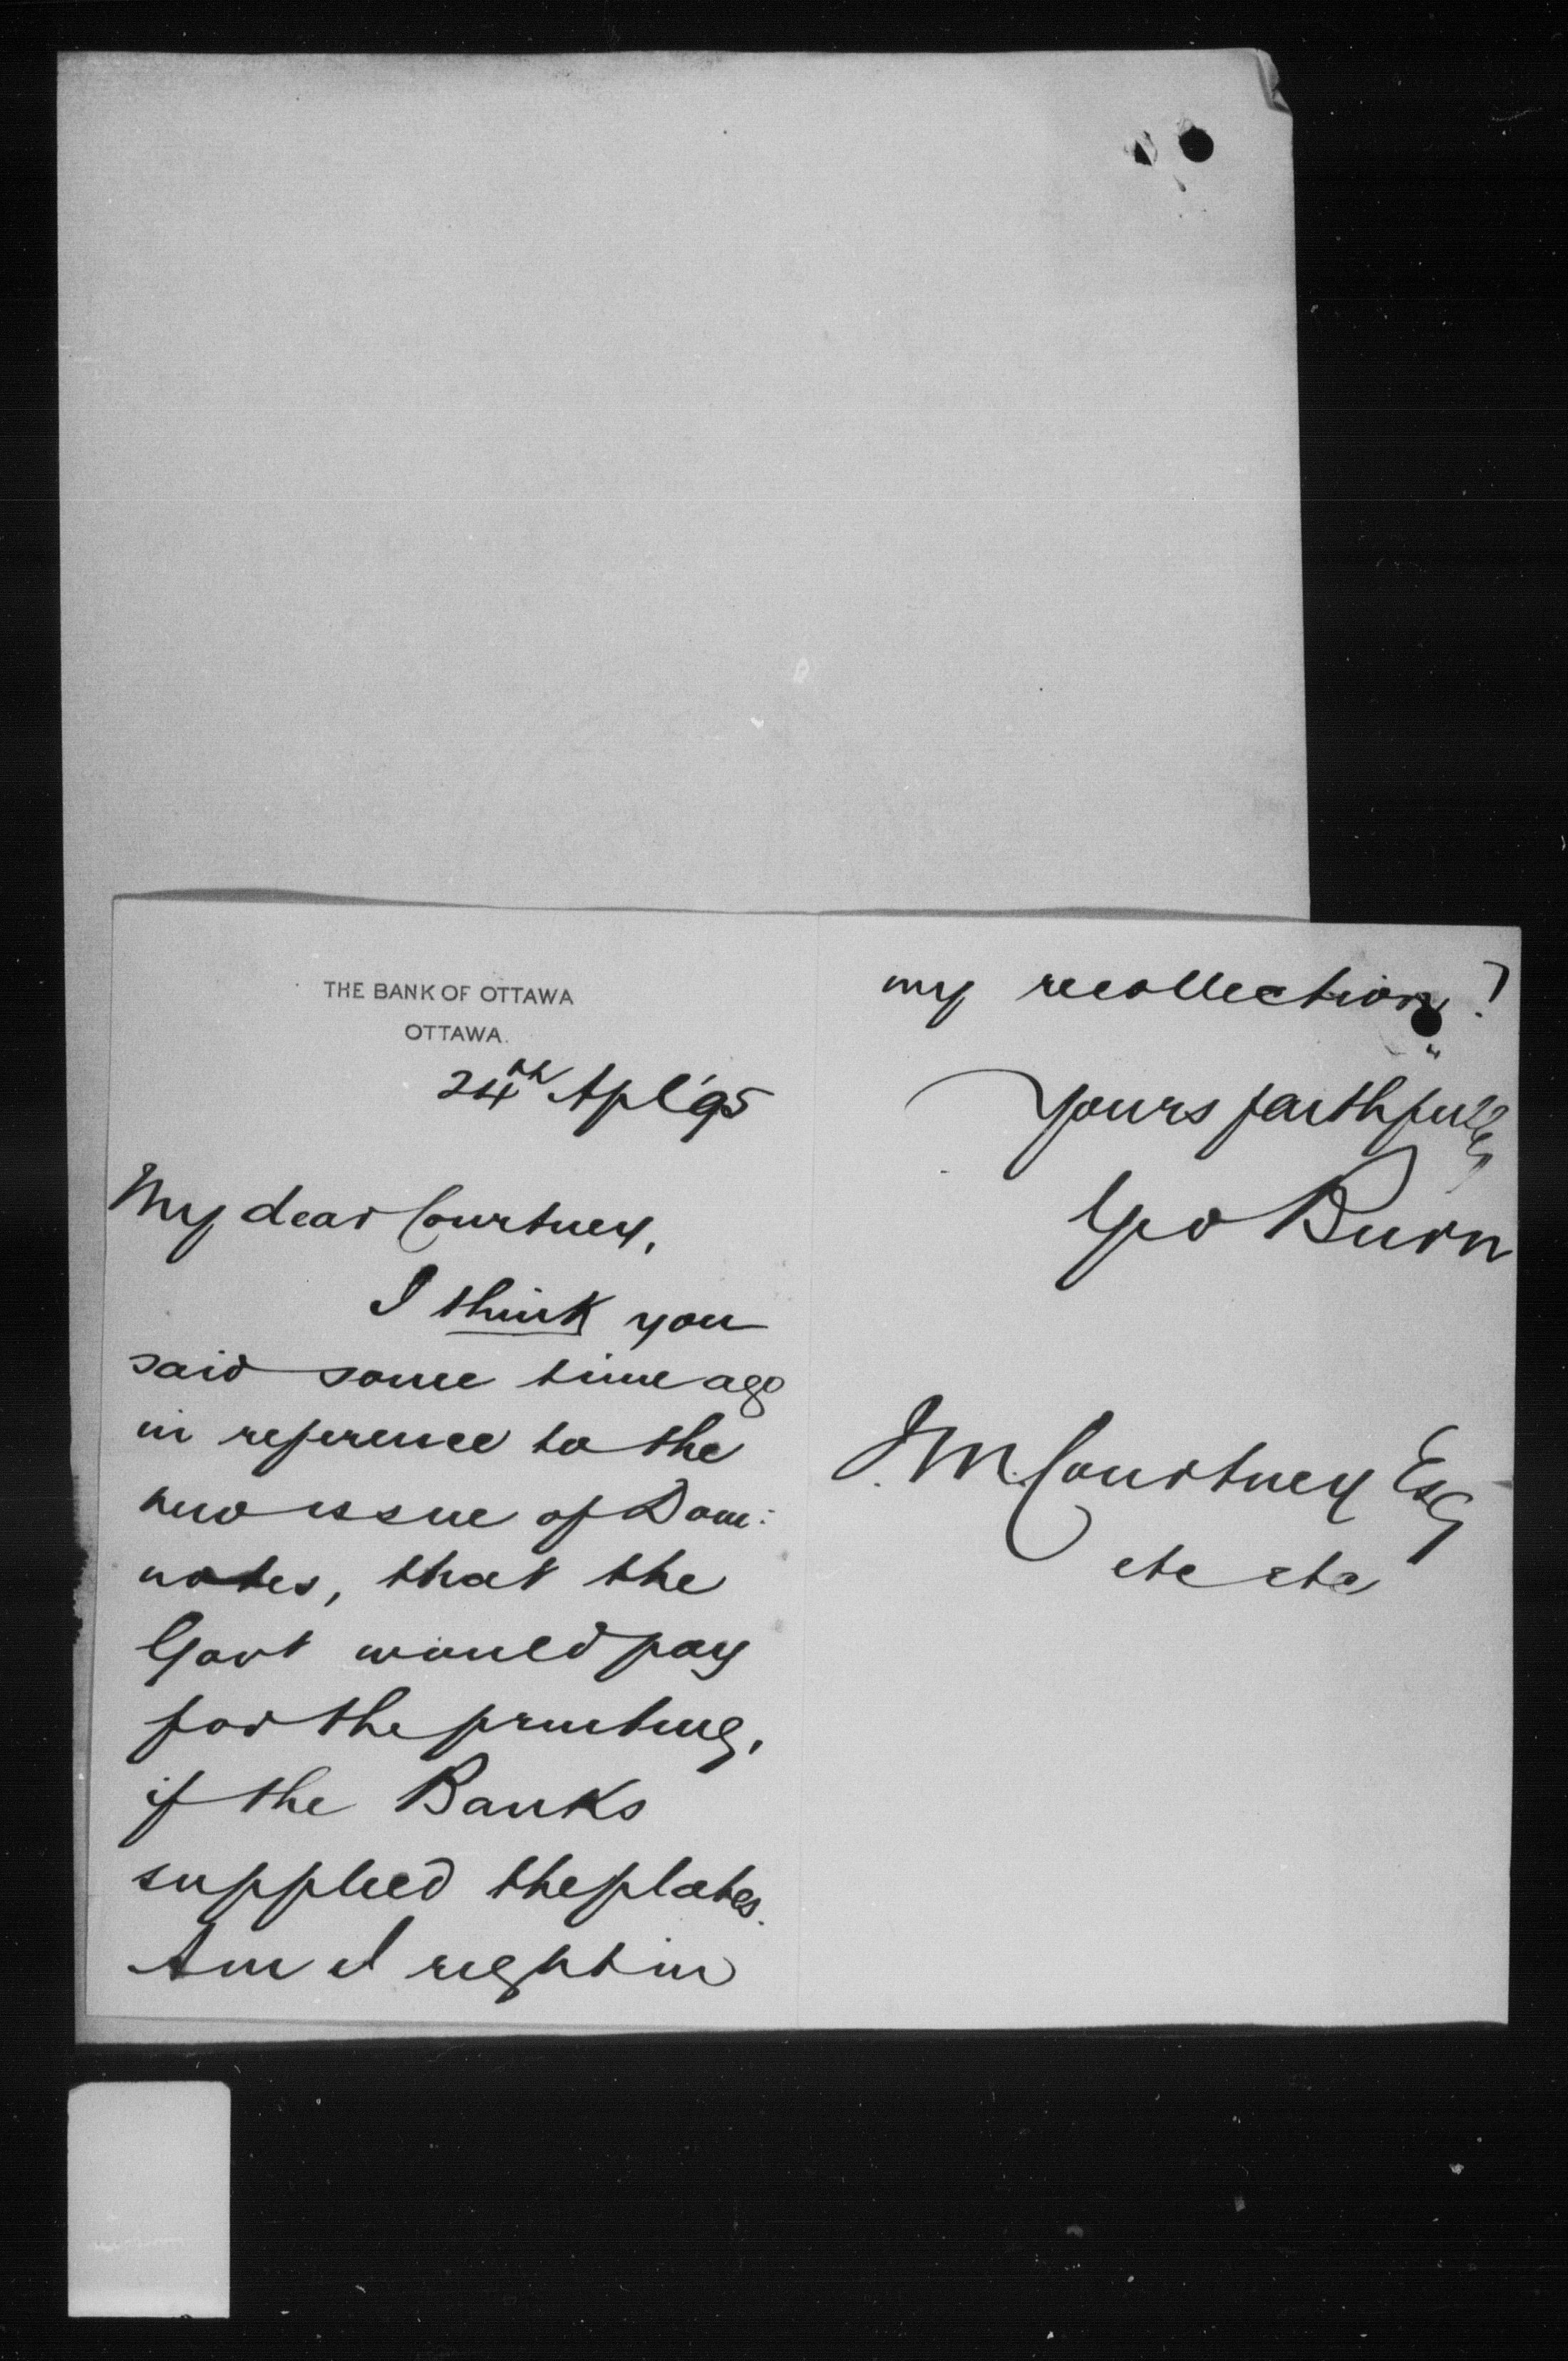 THE BANK OF OTTAWA
OTTAWA.
24th Apl '95
My dear Courtney,
I think you
said some time ago
in reference to the
new issue of Dom:
notes, that the
Govt would pay
for the printing,
if the Banks
supplied the plates.
Am I right in
my recollection?
Yours faithfully
Geo Burn
J.M. Courtney Esq
etc etc